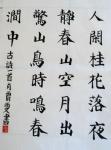 人閑桂花落夜
靜春山空月出
驚山鳥時鳴春
澗中 古詩一首